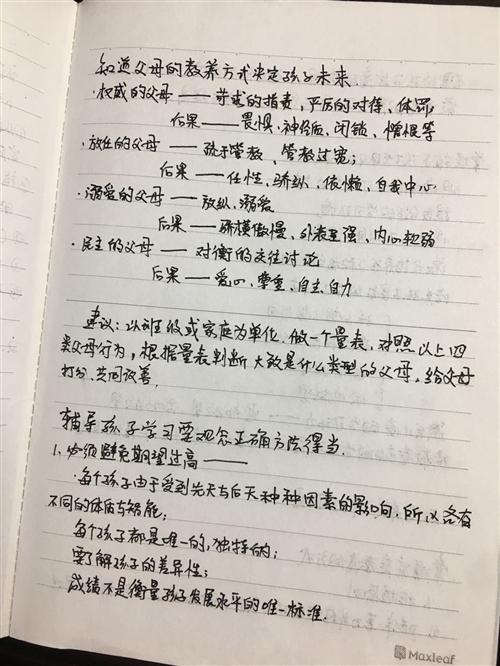 知道父母的教养方式决定孩子未来
·权威的父母——苛求的指责,严厉的对待、体罚
后果——畏惧、神经质、闭锁、憎恨等
·放任的父母——疏于管教、管教过宽;
后果——任性、骄纵、依懒、自我中心
·溺爱的父母——放纵、溺爱
后果——骄横傲慢、外表逞强、内心软弱
·民主的父母——对衡的交往讨论
后果——爱心、尊重、自主、自力
建议:以班级或家庭为单位,做一个量表,对照以上四
类父母行为,根据量表判断大致是什么类型的父母,给父母
打分、共同改善。
辅导孩子学习要观念正确方法得当.
1、必须避免期望过高——
·每个孩子由于受到先天与后天种种因素的影响,所以各有
不同的体质与智能;
每个孩子都是唯一的,独特的;
要了解孩子的差异性;
成绩不是衡量孩子发展水平的唯一标准.
Maxleaf